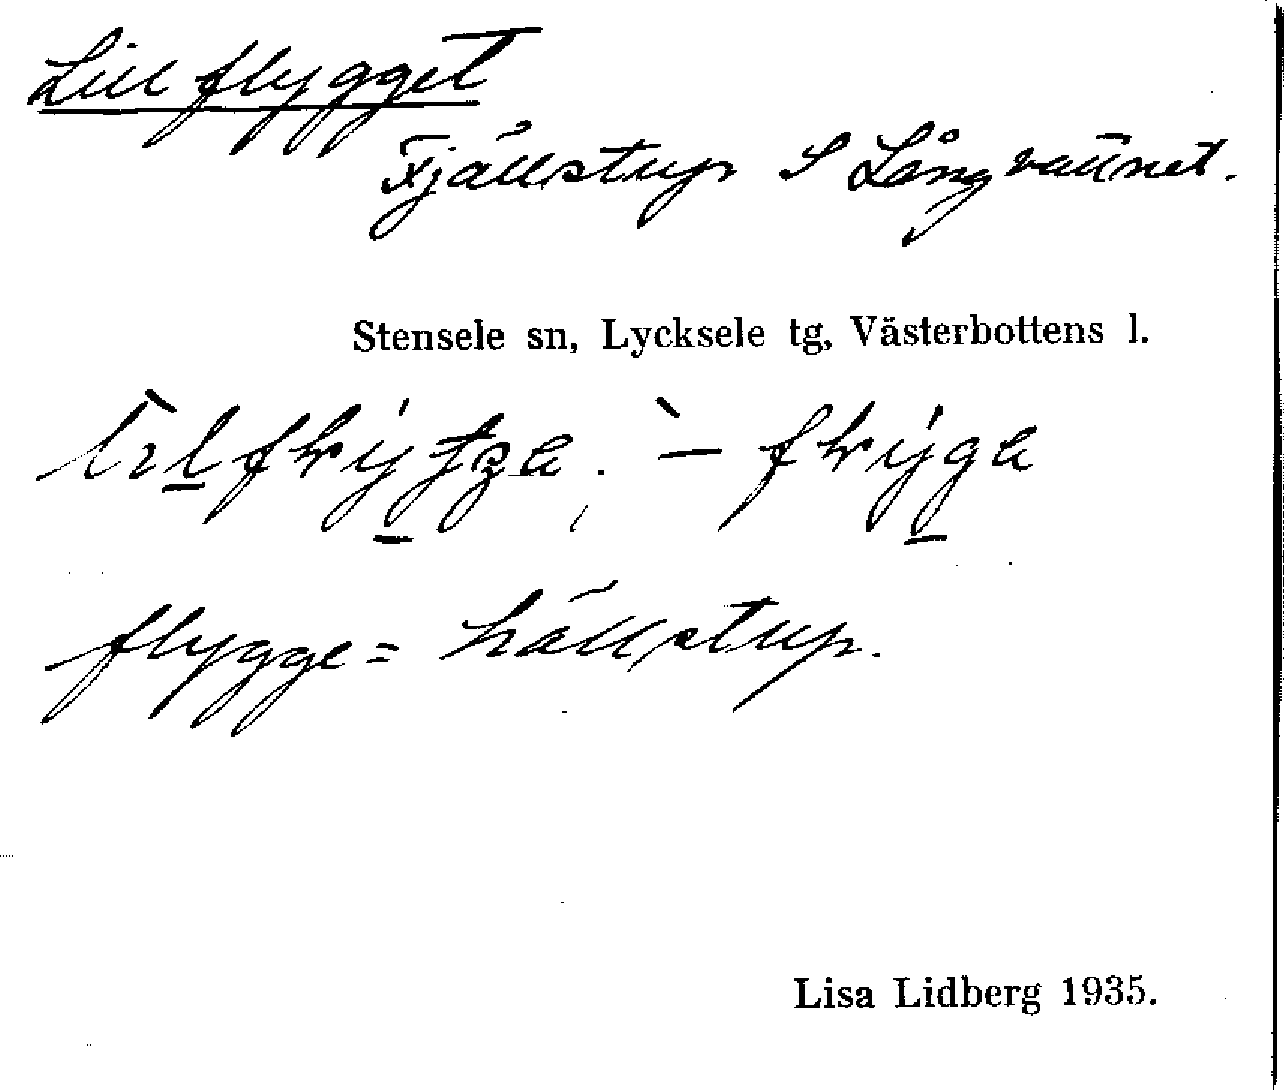 Lillflygget
Fjällstup S Långvattnet.
Stensele sn, Lycksele tg, Västerbottens l.
flygge = hällstup.
Lisa Lidberg 1935.